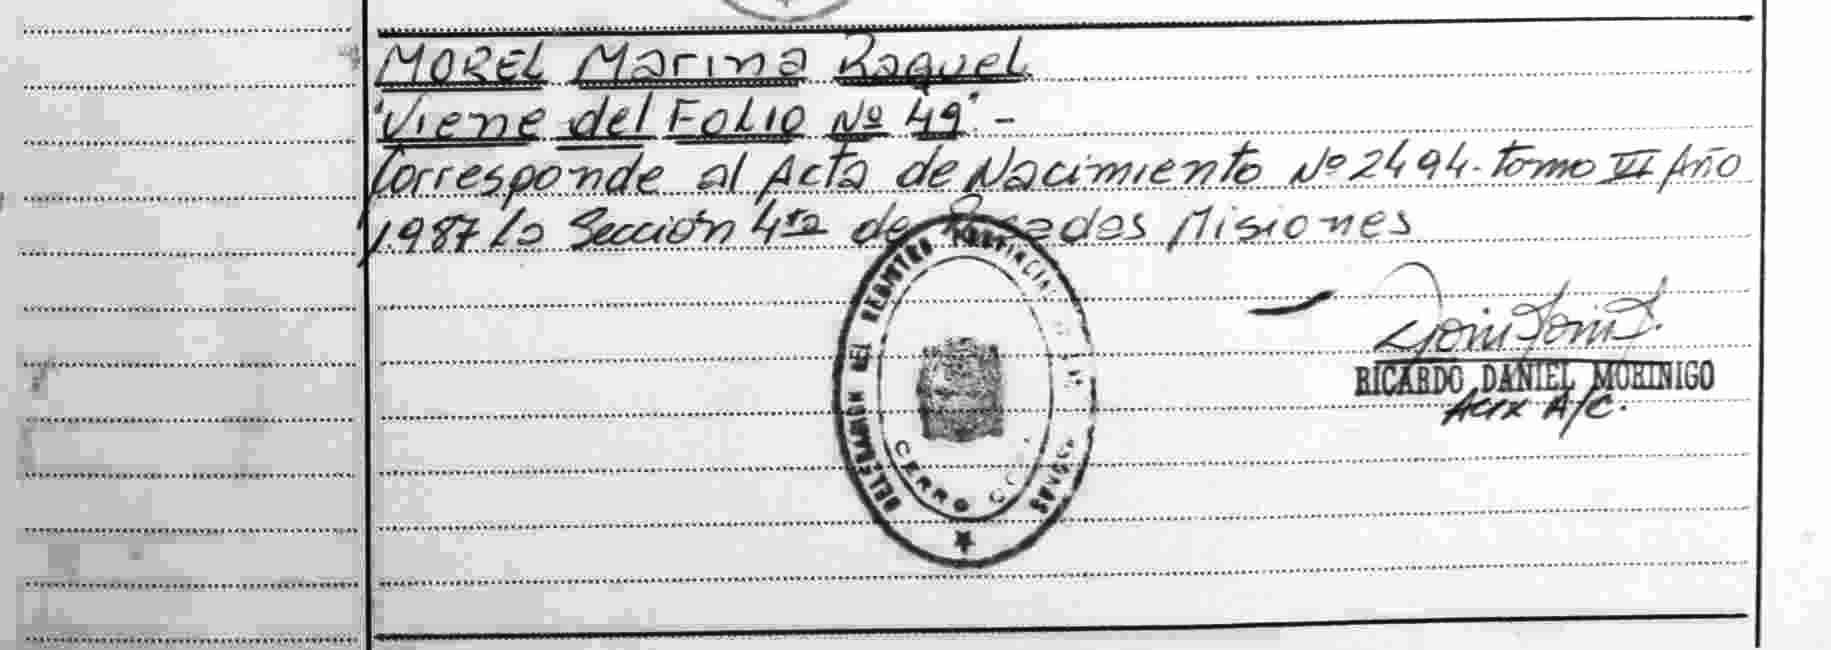 MOREL Marina Raquel
"Viene del Folio Nº 49" -
Corresponde al Acta de Nacimiento Nº 2494. tomo VI Año
1987 La Sección 4ta de Posadas Misiones
DELEGACION DEL REGISTRO PROVINCIAL DE LAS
CERRO
RICARDO DANIEL MORINIGO
Aux A/C.